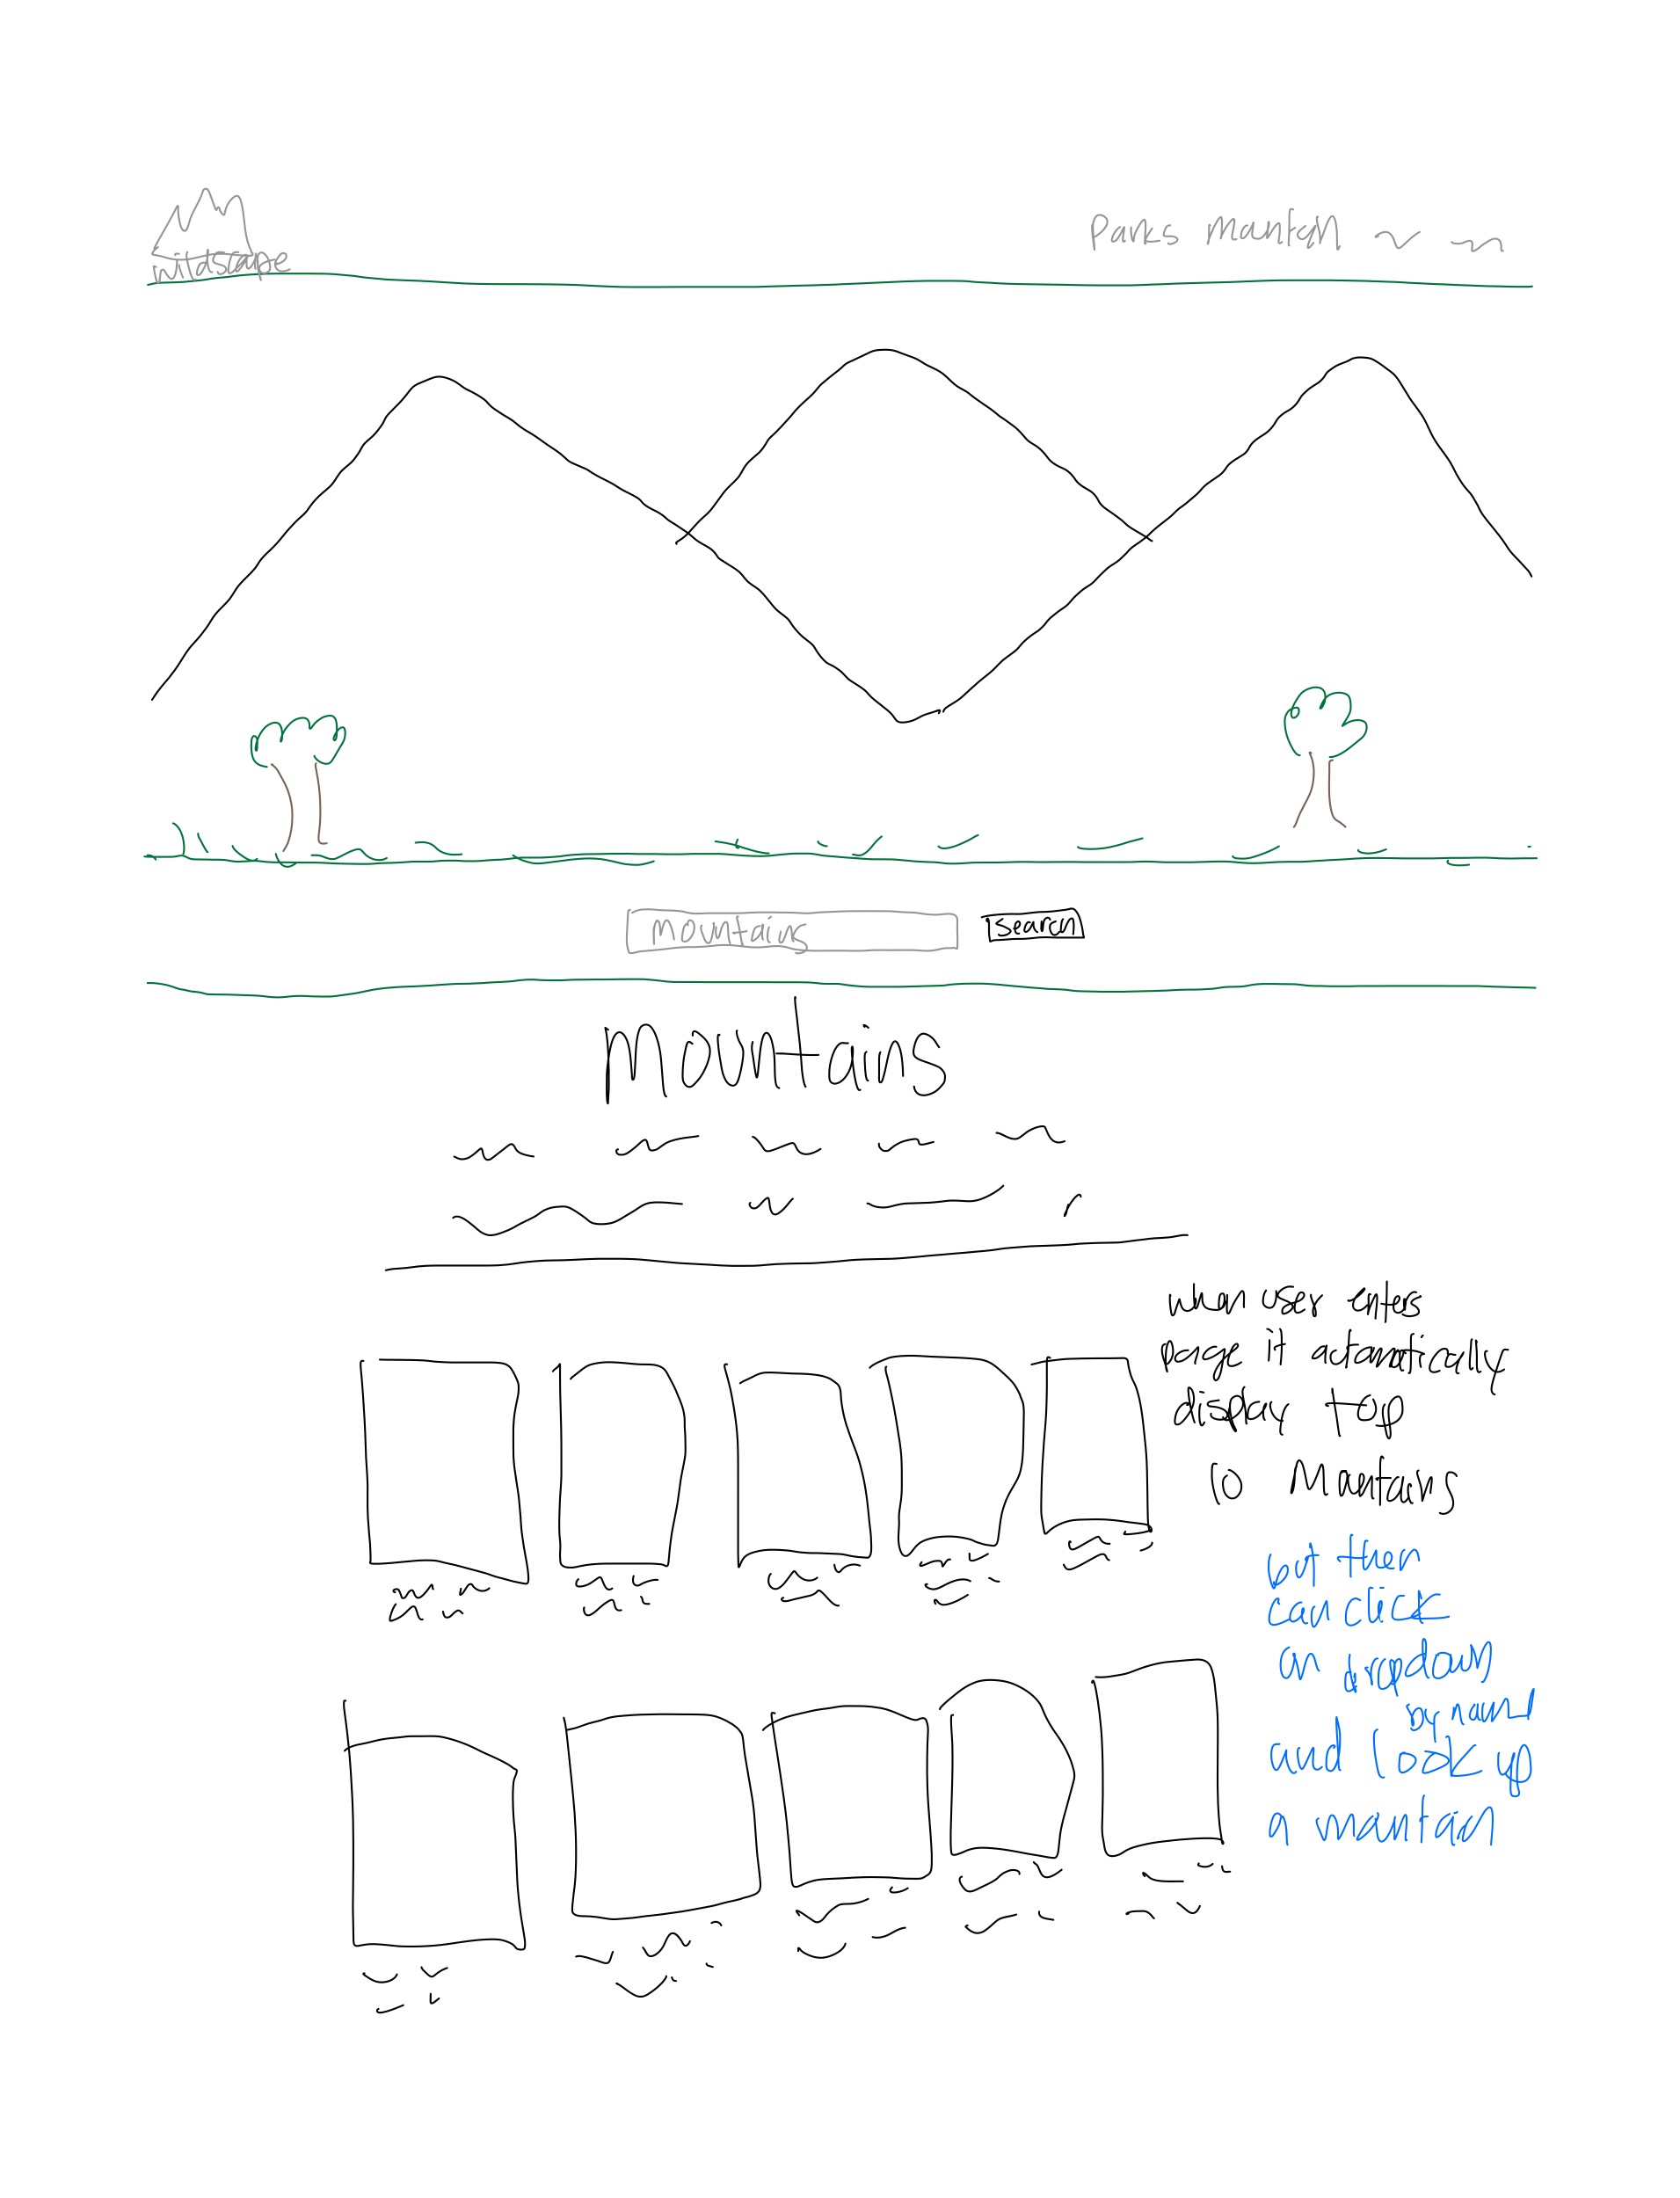 wildscape
Parks Mountain
Mountains
Search
Mountains
when user enters
page it automatically
display top
10 Mountains
but then
can click
on dropdown
by name
and look up
a mountain